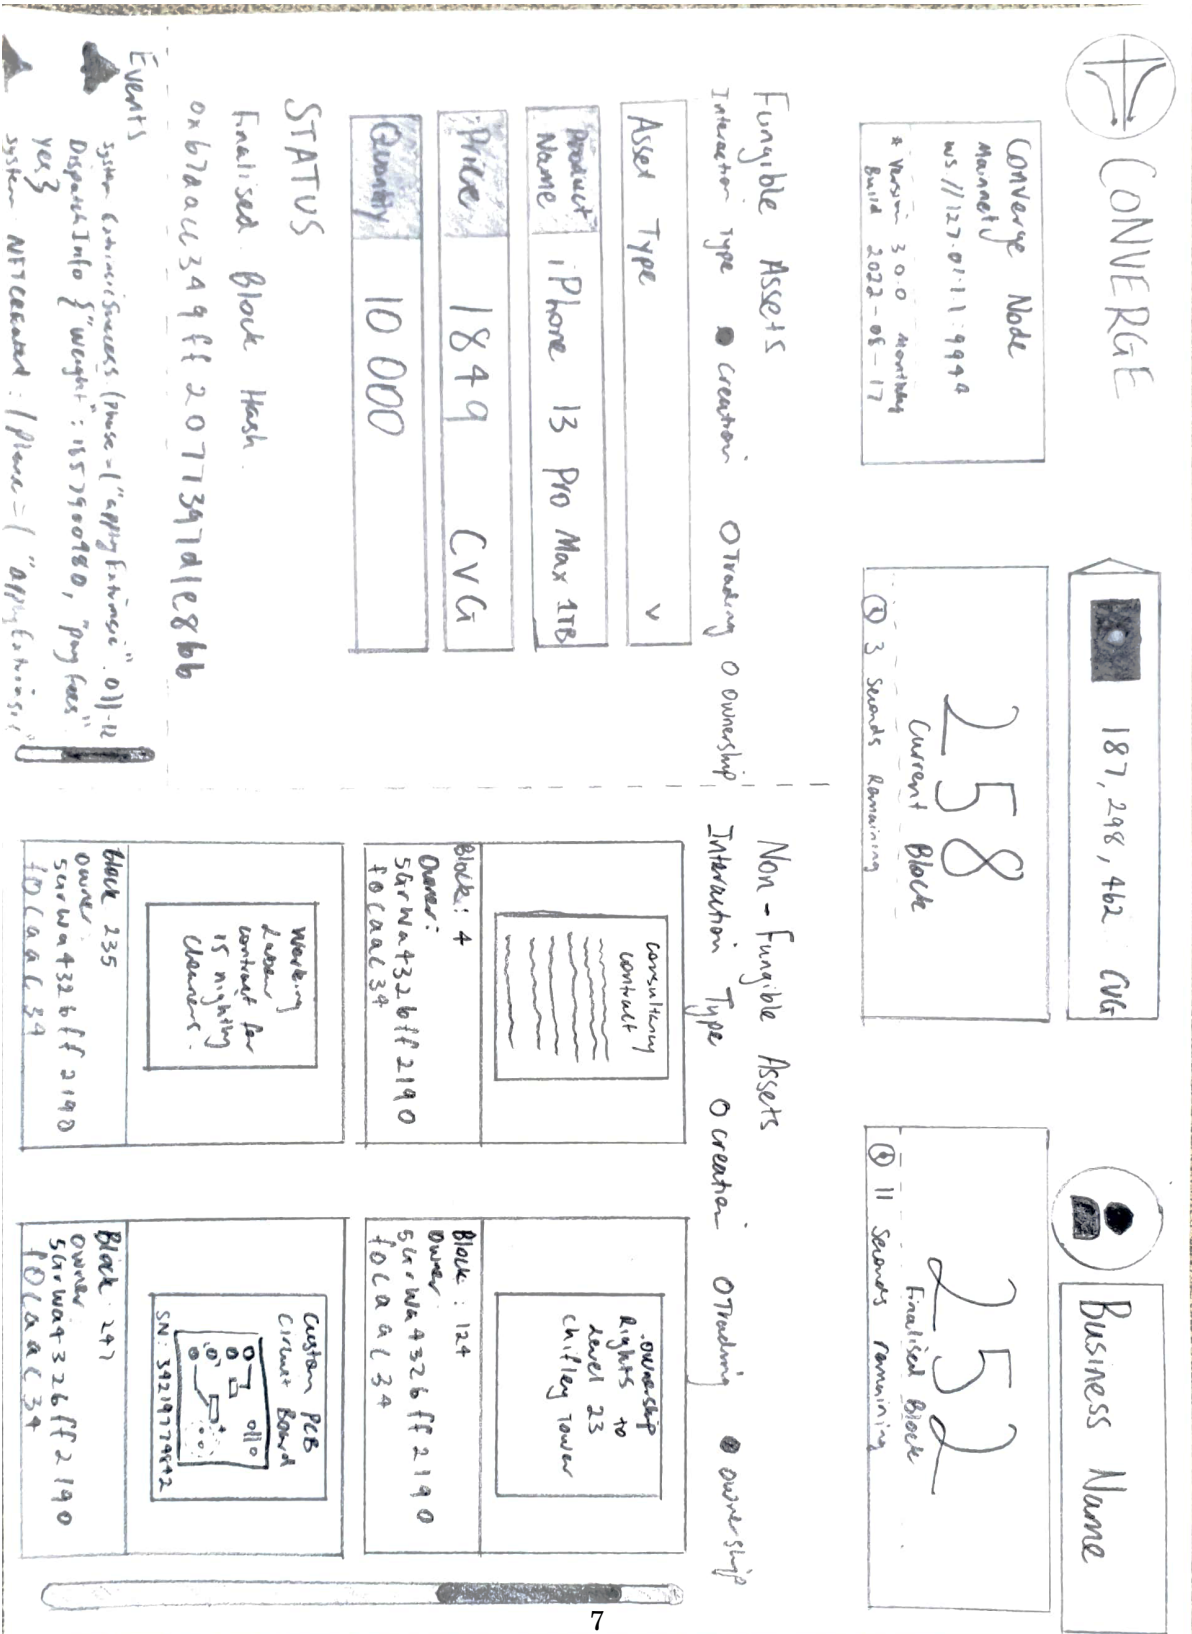 CONVERGE
187,298,462 CVG
Business Name
Converge Node
Mainnet
ws://127.0.1.1:9944
* Version 3.0.0 Monthday
Build 2022-08-17
258
Current Block
3 seconds Remaining
252
Finalised Block
11 seconds remaining
Fungible Assets
Interaction Type creation Trading ownership
Asset Type v
Product
Name
iPhone 13 Pro Max 1TB
Price 1849 CVG
Quantity 10 000
STATUS
Finalised Block Hash
Events
DispatchInfo {"weight": 
yes}
Non-Fungible Assets
Interaction Type creation Trading ownership
consultancy
contract
Block: 4
Owner:
5GrWa4326ff2190
f0caac34
ownership
Rights to
Level 23
Chifley Tower
Block: 124
owner
5GrWa4326ff2190
f0caac34
Working
Labour
contract for
15 nightly
cleaners.
block 235
owner:
5GrWa4326ff2190
f0caac34
Custom PCB
Circuit Board
SN: 34219779842
Block 247
owner:
5GrWa4326ff2190
f0caac34
7